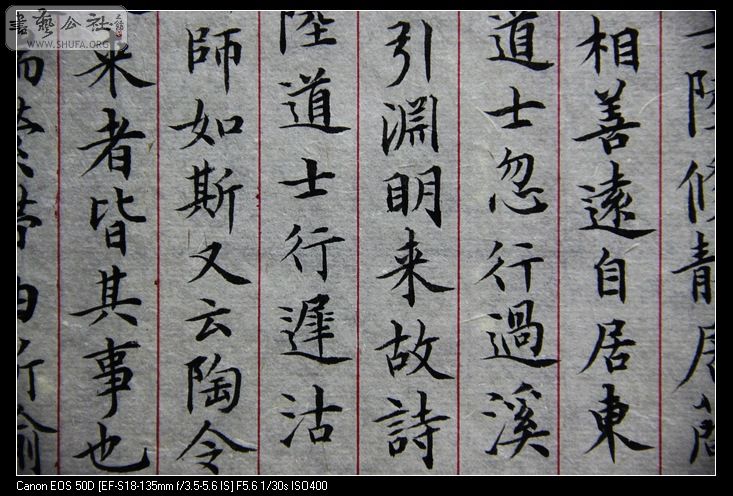 士陸修靜居簡
相善遠自居東
道士忽行過溪
引淵明来故詩
陸道士行遲沽
師如斯又云陶令
来者皆其事也
書藝公社
WWW.SHUFA.ORG
Canon EOS 50D [EF-S18-135mm f/3.5-5.6 IS] F5.6 1/30s ISO400